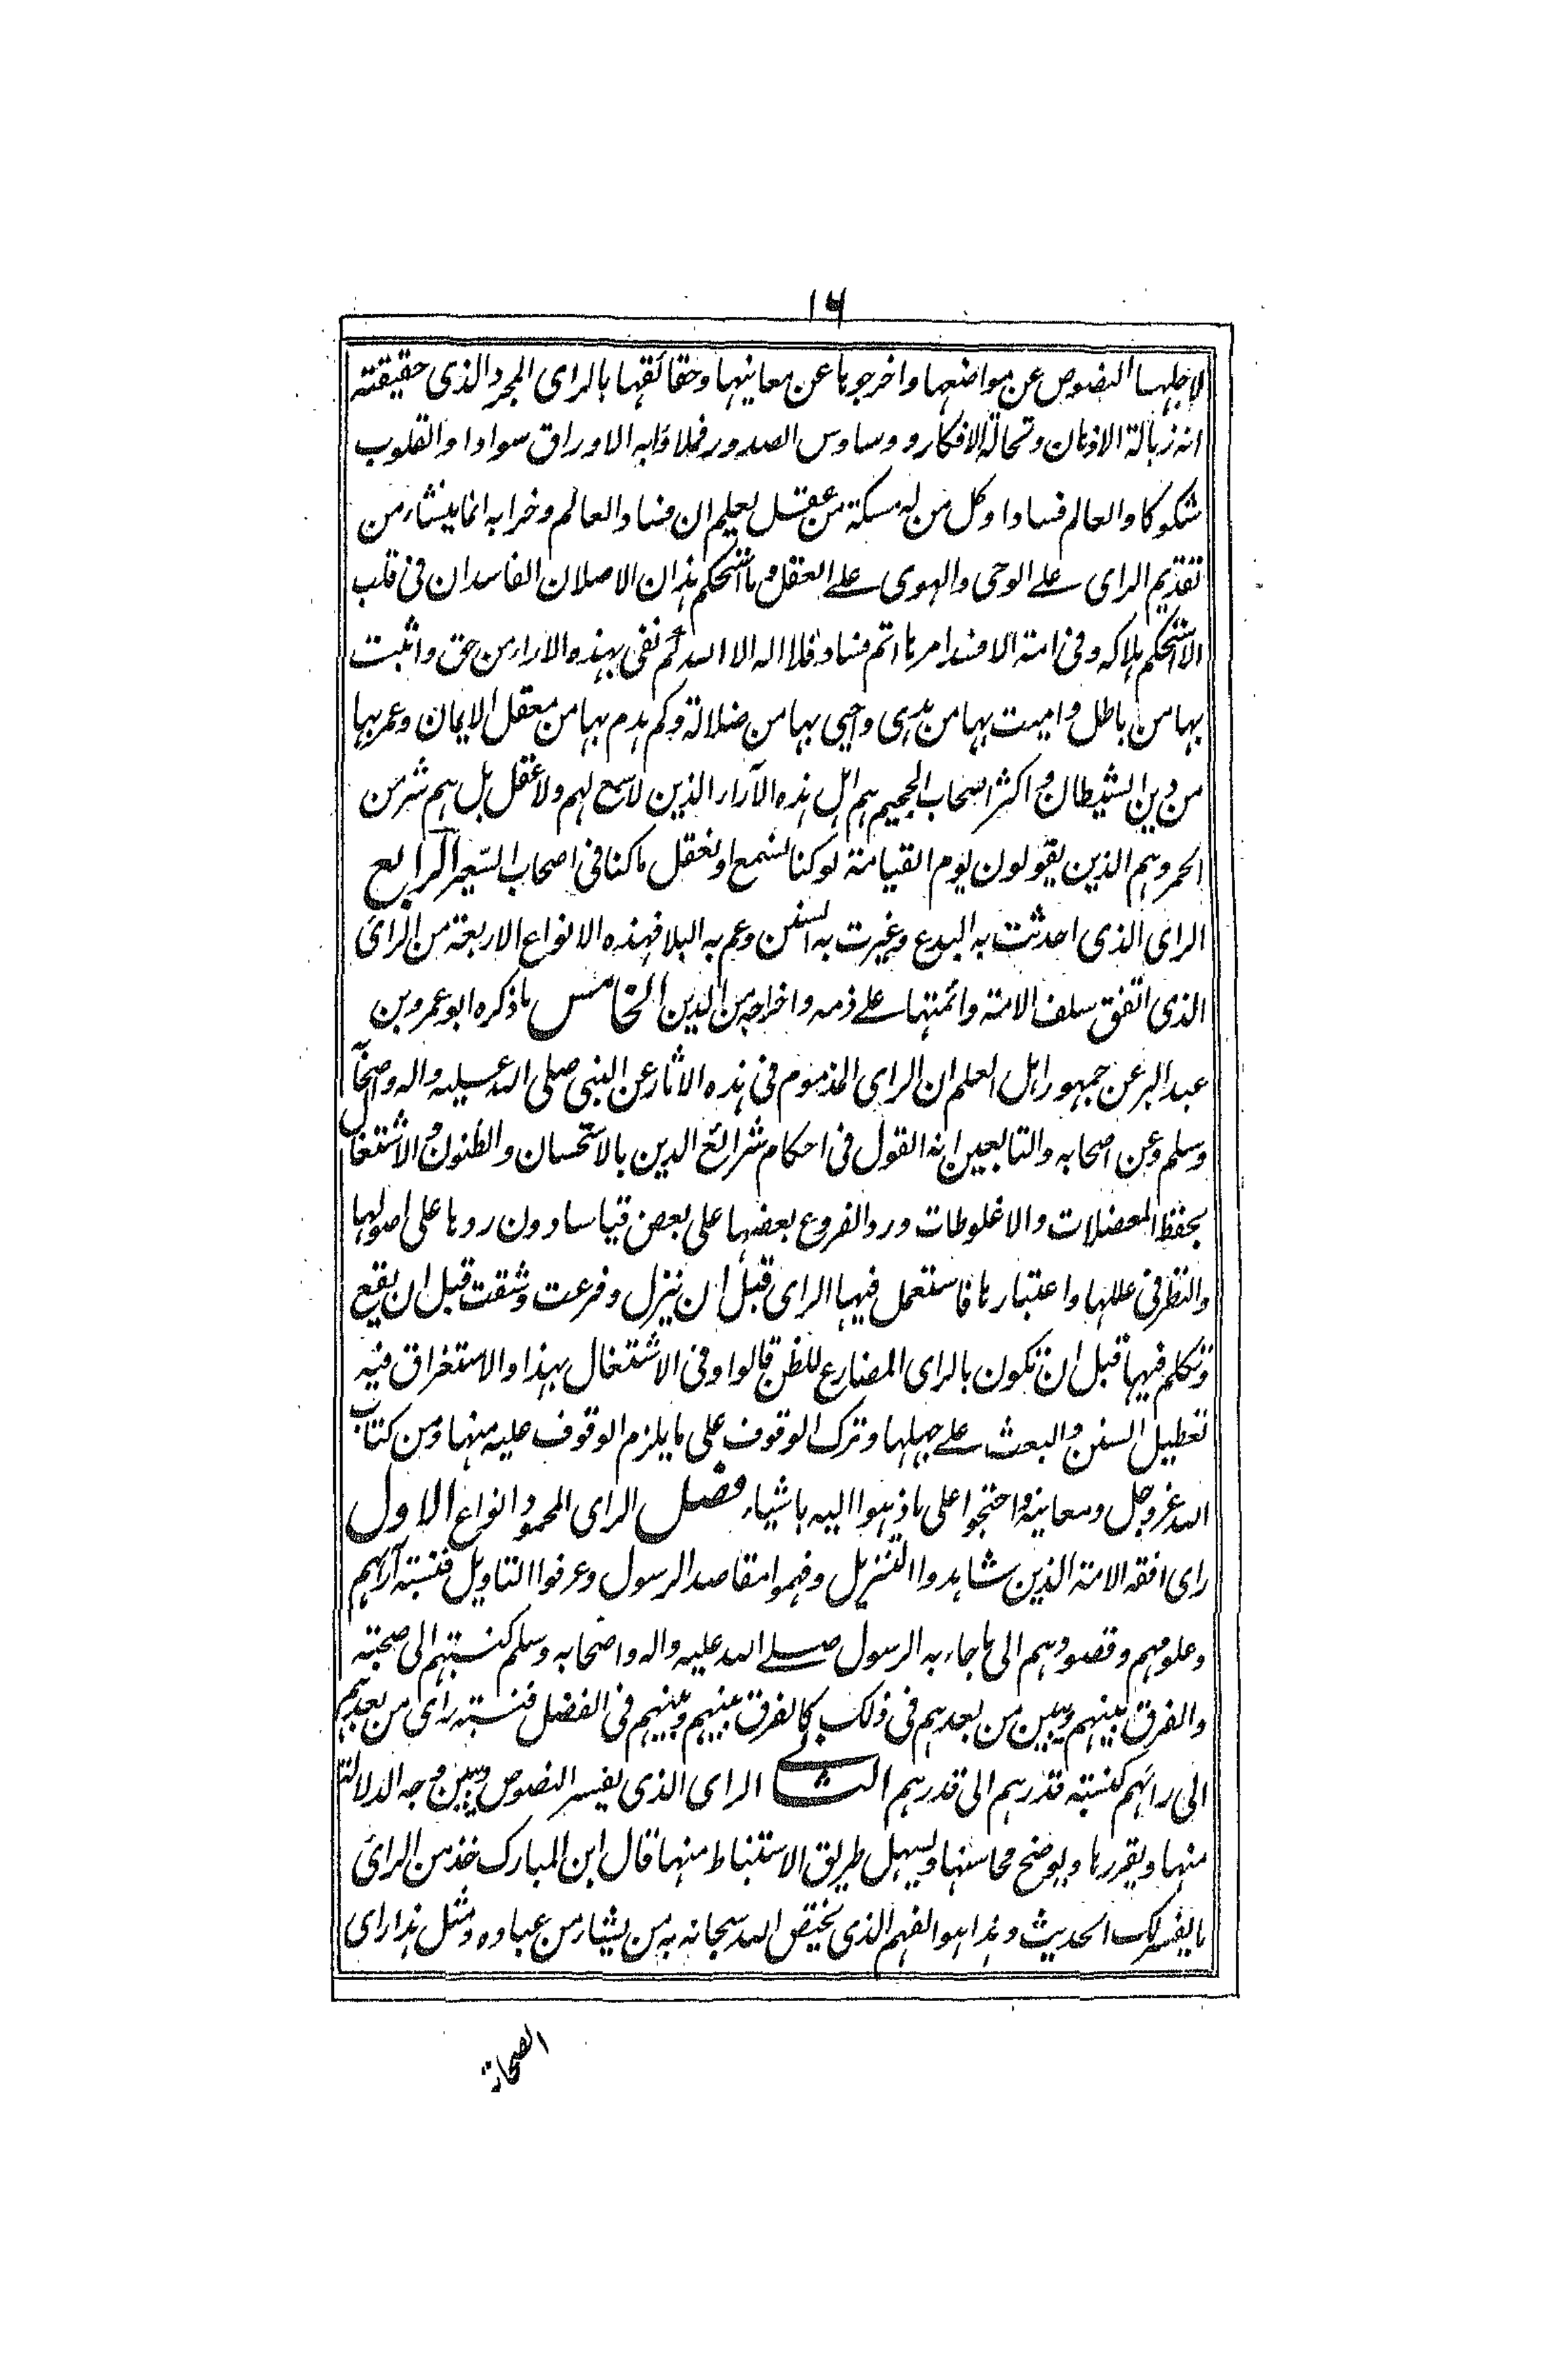 ۱۶
لاجلہا النصوص عن مواضعہا واخرجوہا عن معانیہا وحقائقہا بالرای المجرد الذی حقیقتہ
انہ زبالۃ الاذہان ونحالۃ الافکار ووساوس الصدور فملاؤا بہ الاوراق سوادا والقلوب
شکوکا والعالم فسادا وکل من لہ مسکۃ من عقل یعلم ان فساد العالم وخرابہ انما ینشأ من
تقدیم الرای علے الوحی والہوی علے العقل وما استحکم ہذان الاصلان الفاسدان فی قلب
الا استحکم ہلاکہ وفی امۃ الا فسد امرہا اتم فساد فلا الہ الا اللہ کم نفی بہذہ الاراء من حق واثبت
بہا من باطل وامیت بہا من ہدی واحیی بہا من ضلالۃ وکم ہدم بہا من معقل الایمان وعمر بہا
من دین الشیطان واکثر اصحاب الجحیم ہم اہل ہذہ الآراء الذین لا سمع لہم ولا عقل بل ہم شر من
الحمر وہم الذین یقولون یوم القیامۃ لو کنا نسمع او نعقل ما کنا فی اصحاب السّعیر الرابع
الرای الذی احدثت بہ البدع وغیرت بہ السنن وعم بہ البلا فہذہ الانواع الاربعۃ من الرای
الذی اتفق سلف الامۃ وائمتہا علے ذمہ واخراجہ من الدین الخامس ما ذکرہ ابو عمرو بن
عبد البر عن جمہور اہل العلم ان الرای المذموم فی ہذہ الاثار عن النبی صلی اللہ علیہ والہ واصحابہ
وسلم وعن اصحابہ والتابعین انہ القول فی احکام شرائع الدین بالاستحسان والظنون والاشتغال
بحفظ المعضلات والاغلوطات ورد الفروع بعضہا علی بعض قیاسا دون ردہا علی اصولہا
والنظر فی عللہا واعتبارہا فاستعمل فیہا الرای قبل ان ینزل وفرعت وشقت قبل ان یقع
وتکلم فیہا قبل ان تکون بالرای المضارع للظن قالوا وفی الاشتغال بہذا والاستغراق فیہ
تعطیل السنن والبعث علے جہلہا وترک الوقوف علی ما یلزم الوقوف علیہ منہا ومن کتاب
اللہ عز وجل ومعانیہ واحتجوا علی ما ذہبوا الیہ باشیاء فصل الرای المحمود انواع الاول
رای افقہ الامۃ الذین شاہدوا التنزیل وفہموا مقاصد الرسول وعرفوا التاویل فنسبۃ آرائہم
وعلومہم وقصودہم الی ما جاء بہ الرسول صلے اللہ علیہ والہ واصحابہ وسلم کنسبتہم الی صحبتہ
والفرق بینہم وبین من بعدہم فی ذلک کالفرق بینہم وبینہم فی الفضل فنسبۃ رای من بعدہم
الی رائہم کنسبۃ قدرہم الی قدرہم الثانی الرای الذی یفسر النصوص ویبین وجہ الدلالۃ
منہا ویقررہا ویوضح محاسنہا ویسہل طریق الاستنباط منہا قال ابن المبارک خذ من الرای
ما یفسر لک الحدیث وہذا ہو الفہم الذی یختص اللہ سبحانہ بہ من یشاء من عبادہ ومثل ہذا رای
الصحابۃ